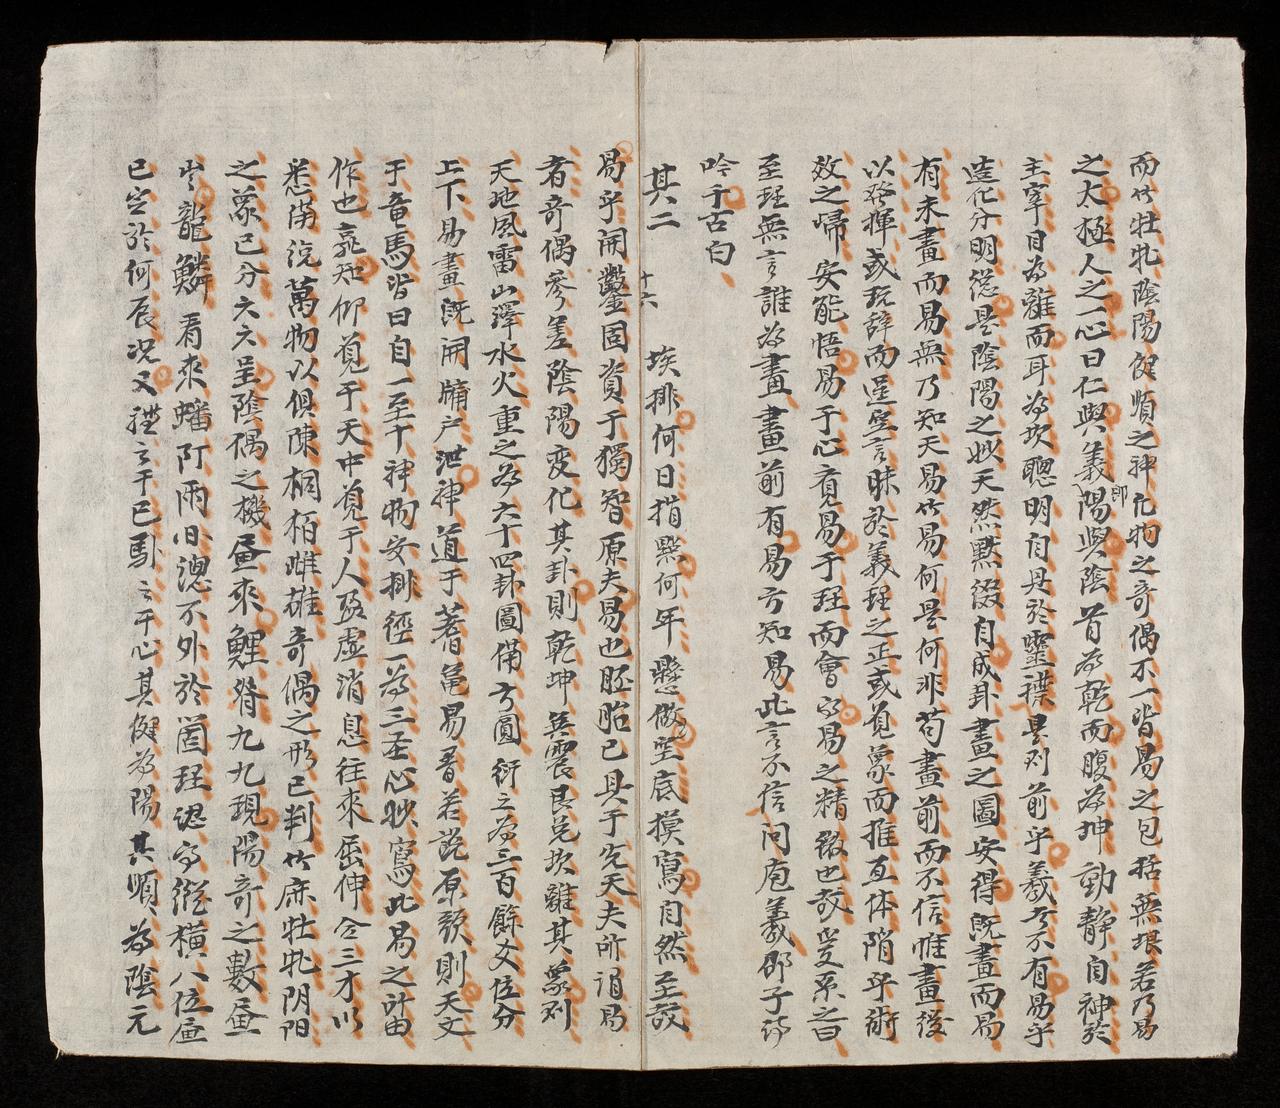 而竹牡牝陰陽健順之神化物之奇偶不一皆易之包括無垠若乃易
之太極人之一心曰仁與義即陽與陰首為乾而腹為坤動靜自神於
主宰目為離而耳為坎聰明自具於靈襟是則前乎羲者不有易乎
造化分明總是陰陽之妙天然默綴自成卦畫之圖安得既畫而易
有未畫而易無乃知天易竹易何是何非苟畫前而不信惟畫後
以發揮或玩辭而逞空言昧於義理之正或覓象而推互体陷乎術
效之歸安能悟易于心覓易于理而會易之精微也哉爰系之曰
至理無言誰為畫畫前有易方知易此言不信問庖羲邵子詩
吟千古白
其二
十六
埃排何日指點何年懸做空底摸寫自然至哉
易乎開鑿固資于獨智原夫易也胚胎已具于先天夫所謂易
者奇偶參差陰陽変化其卦則乾坤巽震艮兌坎離其象則
天地風雷山澤水火重之為六十四卦圖備方圓衍之為三百餘爻位分
上下易畫既開牖户泄神道于蓍龜易書若説原頭則天文
于竜馬皆曰自一至十神物安排徑一為三圣心妙寫此易之所由
作也孰知仰覓于天中覓于人盈虛消息往來屈伸合三才以
悉備統萬物以俱陳桐栢雌雄奇偶之形已判竹麻牡牝阴阳
之象已分六六呈陰偶之機疊來鯉脊九九現陽奇之數疊
龍鱗看來蟠阿兩旧總不外於箇理認縱橫八位
已定於何辰况又體之于已馭之于心其健為陽其順為陰元